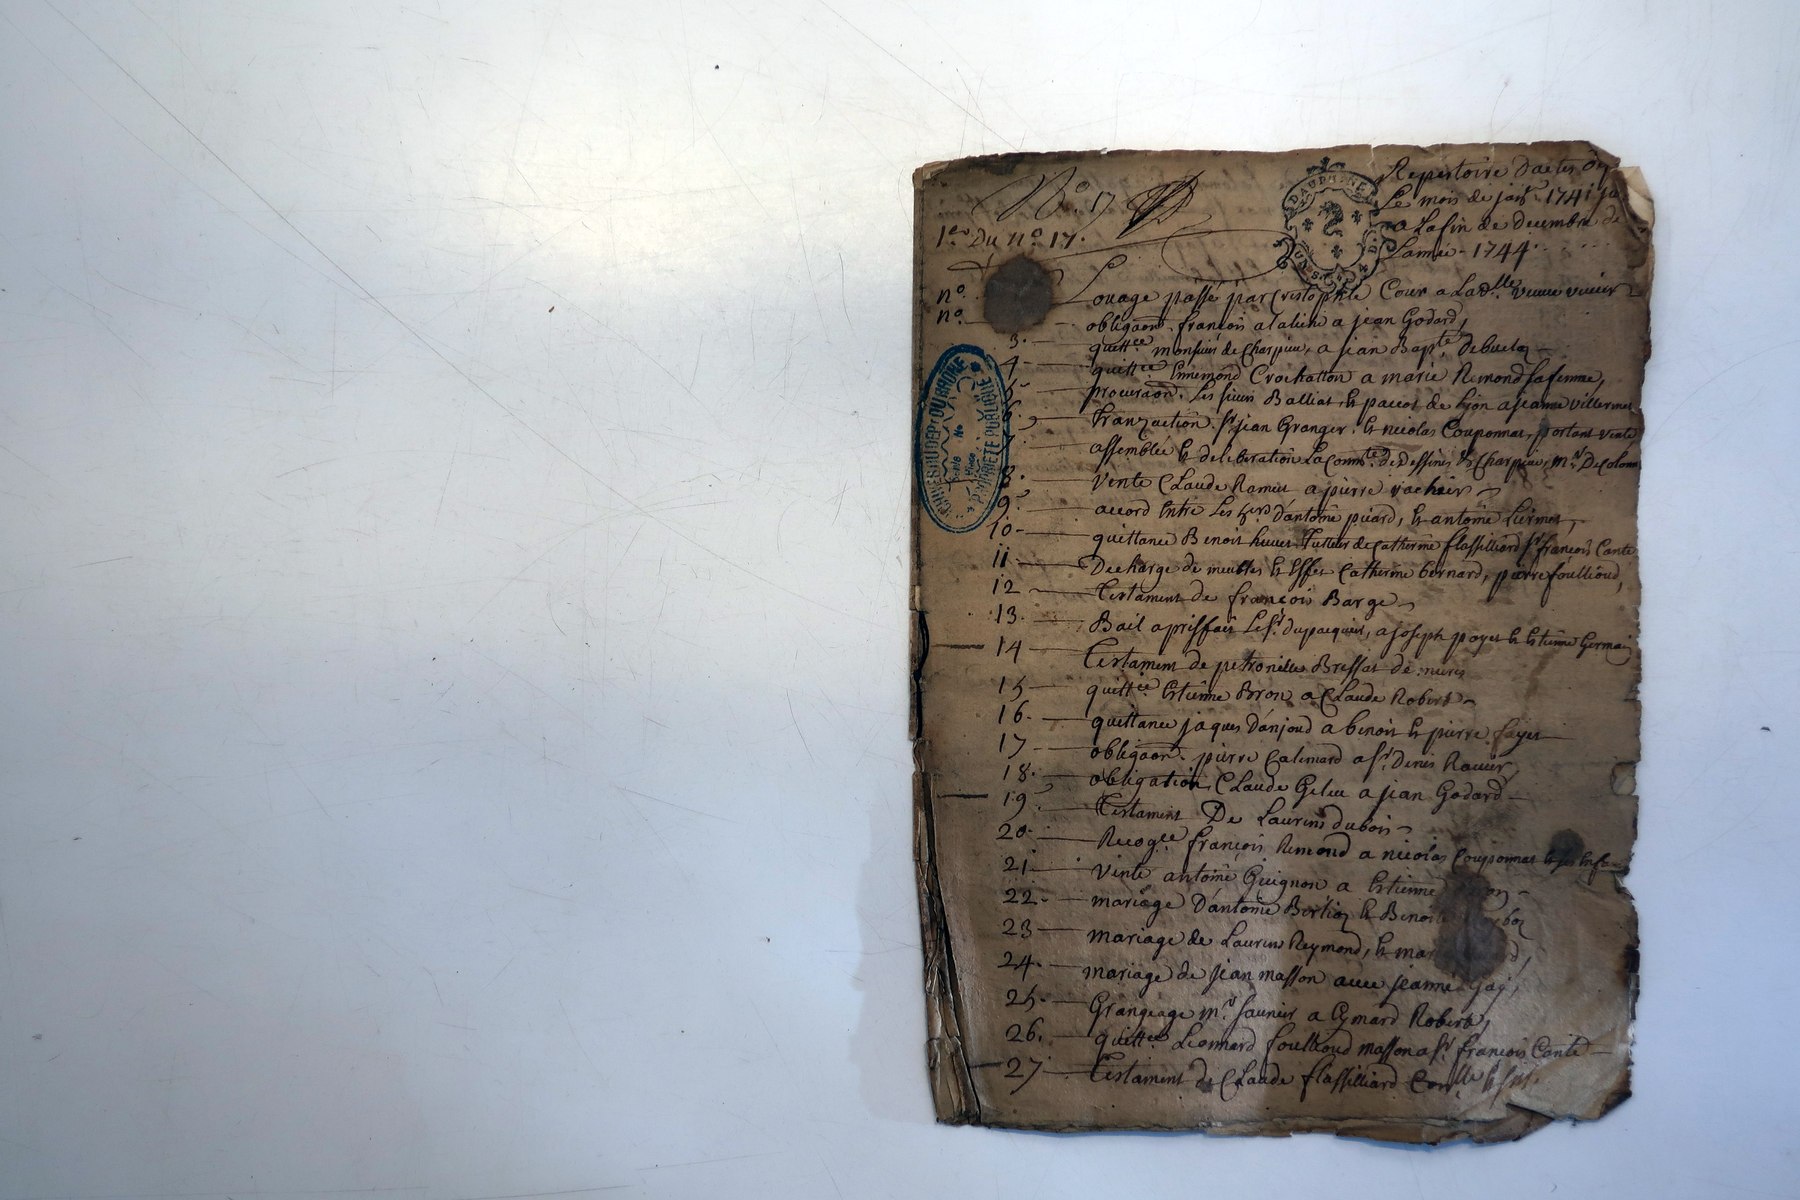 N° 17
Repertoire d'actes
Le mois de janr. 1741
a Lafin de decembre de
Lannée 1744
1er Du n° 17.
DAUPHINE
n° Louage passé par Cristophle Cour a La dlle veuve
n° obligaon. françois a jean Godard,
3. quittce monsieur de Charpieu, a jean Bapte
4 quittce Ennemond Crochatton a marie Remond sa femme,
procuraon. Les sieurs Balliat & paccot de Lyon a jeanne
Tranzaction. Sr jean Granger. & nicolas Couponnat, portant vente
assemblée & deliberation La Commté de Dessines & Charpieu, mr. De
8. vente Claude Ramet a pierre vachier
9. accord Entre Les d'antoine picard, & antoine
10 quittance Benoit tutteur de Catherine flassilliard Sr. françois Cante
11 Decharge de meubles & Effets Catherine bernard, pierre foullioud,
12 Testament de françois Barge
13. Bail a prisfait Le Sr. dupacquier, a joseph payet & Estienne Germai
14 Testament de petronille Bressat de
15 quittce Estienne Bron a Claude Robert
16. quittance jaques Danjoud a benoit & pierre fayet
17 obligaon. pierre Calemard a Sr. Denis Ravier,
18. obligation, Claude Geleu a jean Godard
19 Testament De Laurens dubois
20. Recogce françois Remond a nicolas Couponnat
21 Vente antoine Guignon a Estienne
22. mariage D'antoine &
23 mariage de Laurens Reymond, &
24. mariage de jean masson avec jeanne Gay,
25. Grangeage mr. Saunier a Eymard Robert,
26. quittce Leonnard foullioud masson a Sr. françois Cante
27 Testament de Claude flassilliard
ARCHIVES DU DEPT DU RHONE
PROPRIETE PUBLIQUE